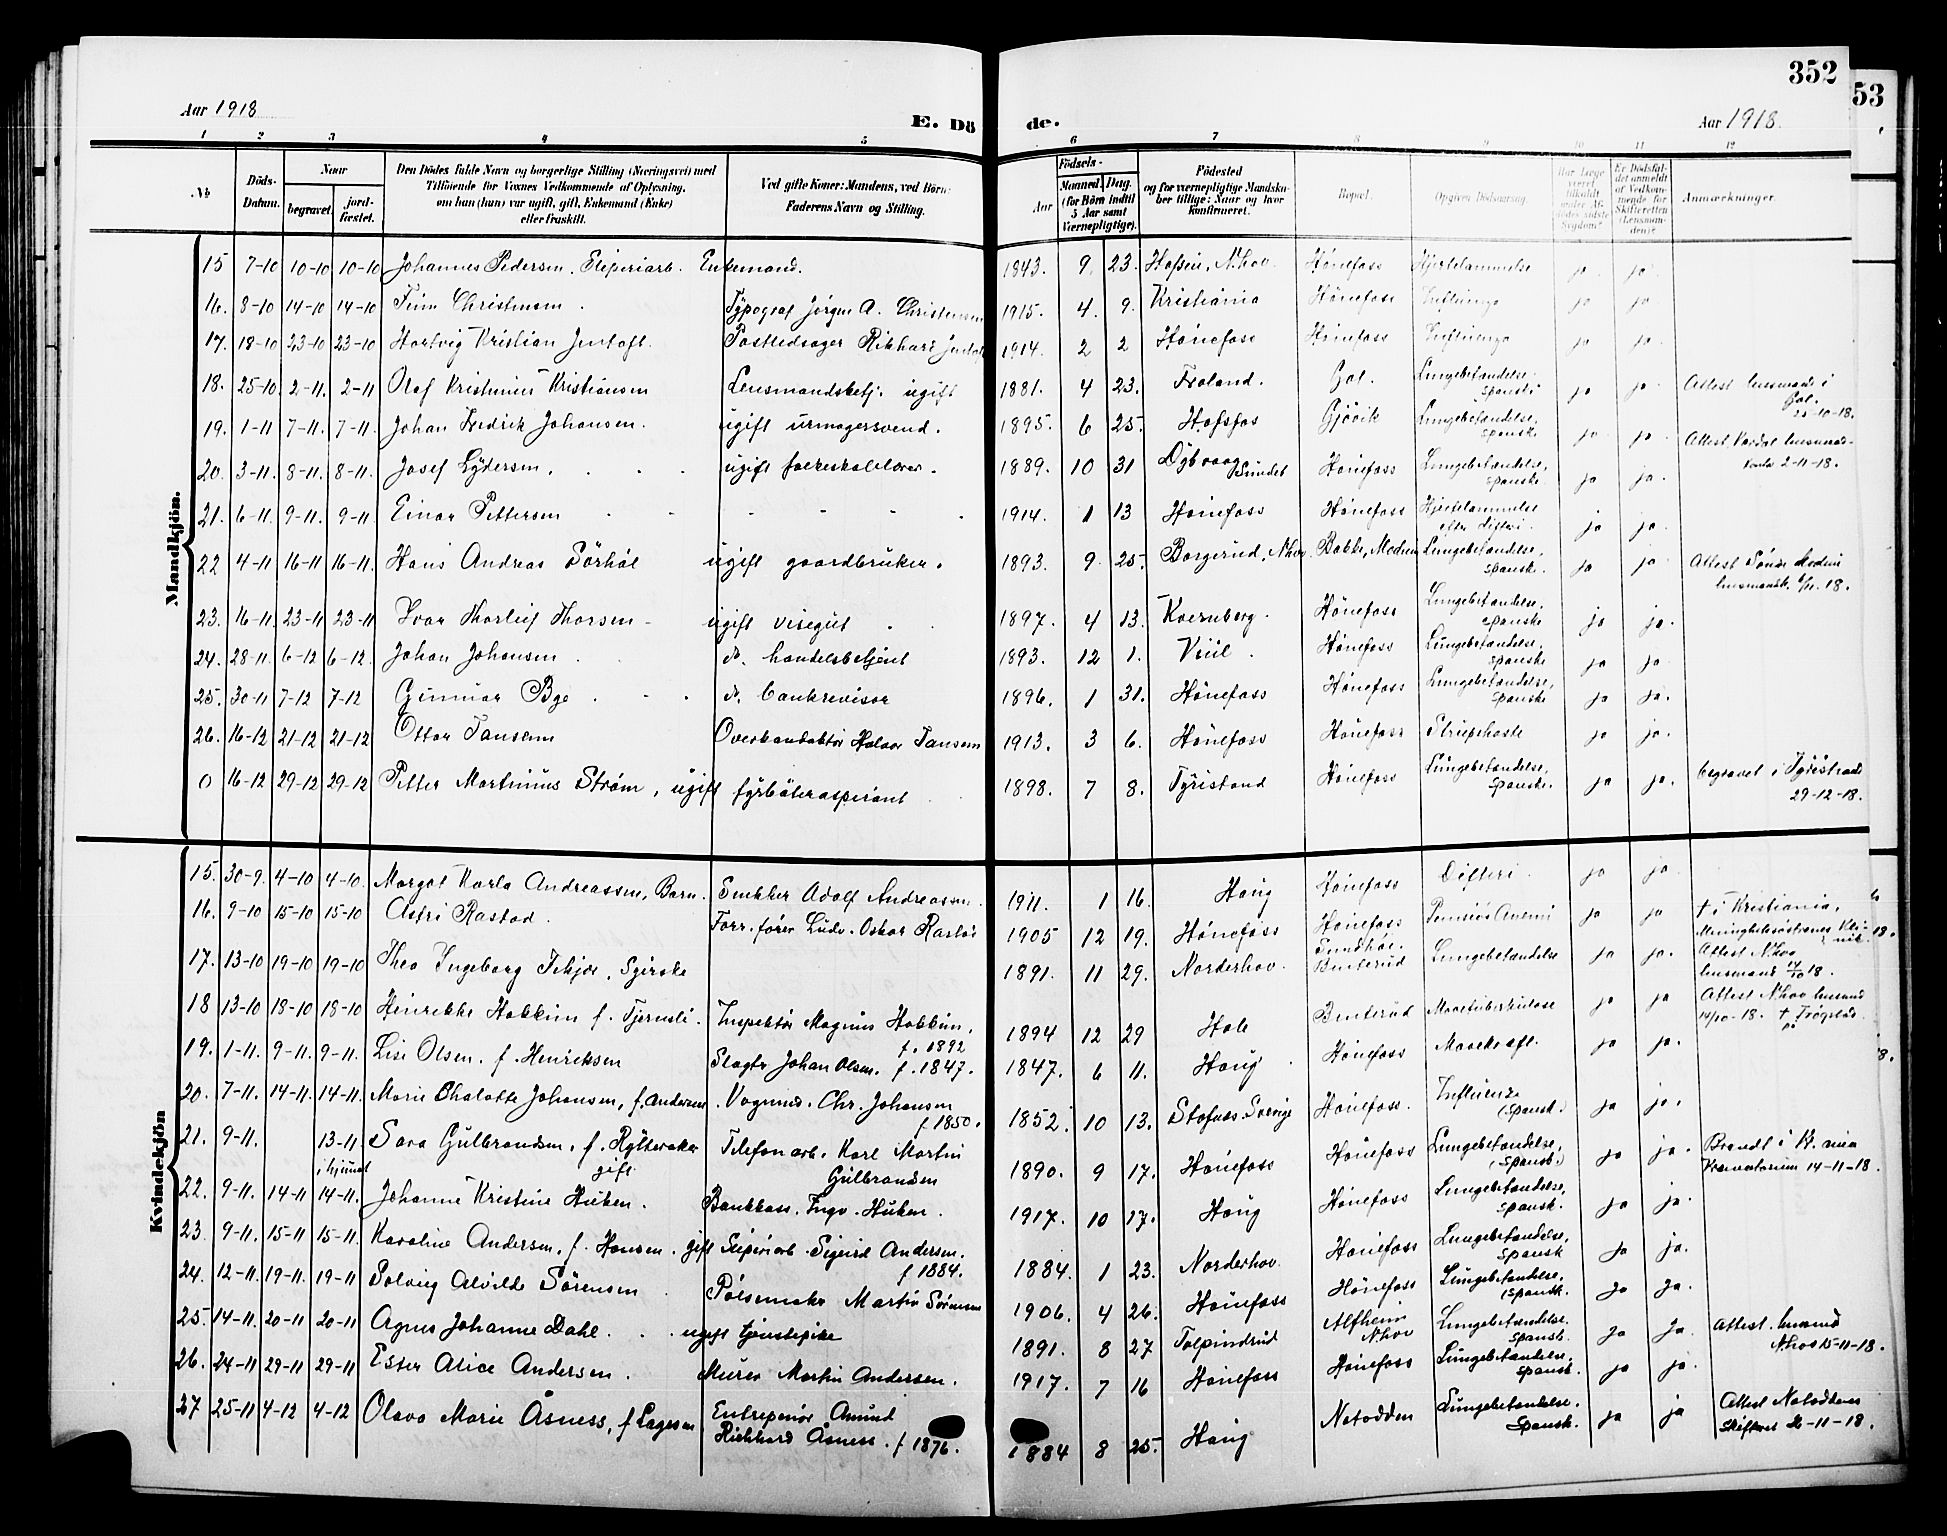 352
53
Aar 1918
E. Dö
de.
Aar 1918.
1 2 3 4 5 6 7 8 9 10 11 12
No
Döds-Datum.
Naar
begravet.
jord-fæstet.
Den Dödes fulde Navn og borgerlige Stilling (Næringsvei) med
Tilföiende for Voxnes Vedkommende af Oplysning,
om han (hun) var ugift, gift, Enkemand (Enke)
eller fraskilt.
Ved gifte Koner: Mandens, ved Börn:
Faderens Navn og Stilling.
Födsels-
Aar
Maaned. Dag.
(for Börn indtil
5 Aar samt
Værnepligtige).
Födested
og for værnepligtige Mandskaber
tillige: Naar og hvor
konfirmeret.
Bopæl.
Opgiven Dödsaarsag.
Anmærkninger.
Mandkjön.
15 7-10 10-10 10-10 Johannes Pedersen. Sliperiarb. Enkemand. 1843. 9. 23. Hønefoss Hjertelammelse ja. ja.
16. 8-10 14-10 14-10 Finn Christensen. Typograf Jørgen A. Christensen 1915. 4. 9. Kristiania Hønefoss Influenza ja ja
17. 18-10 23-10 23-10 Hartvig Kristian Jentoft. 1914. 2 2 Hønefoss Hønefoss Influenza ja ja.
18. 25-10 2-11. 2-11 Olaf Kristiansen Lensmandsbetj. ugift 1881. 4 23. Froland. Gol. Lungebetændelse. spanske ja ja. Attest lensmand i
Gol.
25-10-18.
19. 1-11 7-11. 7-11. Johan Fredrik Johansen. ugift urmagersvend. 1895. 6 25. Hofsfos Gjøvik Lungebetændelse, spanske ja. ja.
2-11-18.
20. 3-11. 8-11 8-11. Josef Lydersen. ugift folkeskolelærer. 1889. 10 31 Dybvaag Hønefoss Lungebetændelse, spanske. ja ja.
21. 6-11. 9-11. 9-11 Einar Pettersen 1914. 1 13 Hønefoss Hønefoss Hjertelammelse efter difteri. ja ja.
22 4-11 16-11 16-11. Hans Andreas Sørhøl ugift gaardbruker. 1893. 9. 25. Borgerud, N.hov. Modum Lungebetændelse, spanske. ja ja. Attest
lensmandsk. 18.
23. 16-11. 23-11 23-11 Ivar Thorleif Thorsen - ugift visegut 1897. 4 13. Kvernberg. Hønefoss Lungebetændelse, spanske ja ja.
24. 28-11. 6-12 6-12. Johan Johansen d. handelsbetjent 1893. 12 1. Viul. Hønefoss Lungebetændelse, spanske ja ja.
25. 30-11 7-12 7-12 Gunnar Bye d. bankrevisor 1896. 1 31. Hønefoss Hønefoss Lungebetændelse, spanske ja ja.
26. 16-12 21-12 21-12 Ottar Jansen Overkonduktør Halvor Jansen 1913. 3 6. Hønefoss Hønefoss Strupehoste ja ja.
0 16-12 29-12 29-12 Petter Martinius Strøm, ugift fyrbøteraspirant 1898. 7 8. Tyristrand Hønefoss Lungebetændelse, spanske. ja ja. begravet i Tyristrand
29-12-18.
Kvindekjön
15. 30-9. 4-10 4-10. Margot Karla Andreassen, Barn. Snekker Adolf Andreassen. 1911. 1 16. Haug Hønefoss Difteri. ja ja.
16. 9-10 15-10 15-10 Astri Rastad. Forr.fører Ludv. Oskar Rastad 1905 12 19. Hønefoss Hønefoss Perniciøs Anemi ja ja † i Kristiania,
17. 13-10 19-10 19-10 Thea Ingeborg 1891. 11 29. Norderhov. Benterud Lungebetændelse ja ja. Attest N.hov
lensmand 14/10 18.
18 13-10 18-10 18-10 Henrikke Hakkim f. Tjernsli. Inspektør Magnus Hakkim, f. 1892 1894 12 29 Hole Benterud Mavetuberkulose ja ja Attest N.hov lensmand
14/10-18.
19. 1-11 9-11. 9-11. Lise Olsen. f. Henriksen Slagter Johan Olsen. f. 1847. 1847. 6 11. Haug Hønefoss Mavekræft. ja ja.
20. 7-11. 14-11 14-11. Marie Chalotte Johansen, f. Andersen Vognmd. Chr. Johansen f 1850. 1852. 10 13. Sverige Hønefoss. Influenza (spansk.) ja ja.
21. 9-11. 13-11 i hjemmet Sara Gulbrandsen, f. Rytteraker gift Telefonarb. Karl Martin Gulbrandsen 1890. 9 17. Hønefoss Hønefoss Lungebetændelse, (spansk.) ja ja. Brændt i Kr.ania
Krematorium 14-11-18.
22. 9-11. 14-11 14-11. Johanne Kristine Huken. Bankkass. Ingv. Huken. 1917. 10 17. Haug Hønefoss Lungebetændelse, spansk. ja ja.
23. 9-11. 15-11 15-11. Karoline Andersen, f. Hansen. gift Sliperiarb. Sigurd Andersen. f 1884. 1884. 1 23. Norderhov. Hønefoss Lungebetændelse, spansk ja ja.
24. 12-11. 19-11. 19-11 Solveig Alvilde Sørensen Pølsemaker Martin Sørensen 1906. 4 26. Hønefoss Hønefoss Lungebetændelse, (spansk. ja ja.
25. 14-11. 20-11 20-11 Agnes Johanne Dahl. ugift tjenestepike 1891. 8 27 Tolpinrud Alfheim N.hov Lungebetændelse. spansk. ja ja. Attest. lensmd
N.hov 15-11-18.
26. 24-11 29-11 29-11 Ester Alice Andersen. Murer Martin Andersen. 1917. 7 16 Hønefoss Hønefoss Lungebetændelse, spansk. ja ja.
27 25-11 4-12 4-12 Olava Marie Åsness, f. Lagesen Entreprenør Amund
Rickhard Åsness. f 1876. 1884 8 25. Haug Notodden Lungebetændelse. Spansk. ja ja Attest Notoddens
Skifteret 26-11-18.